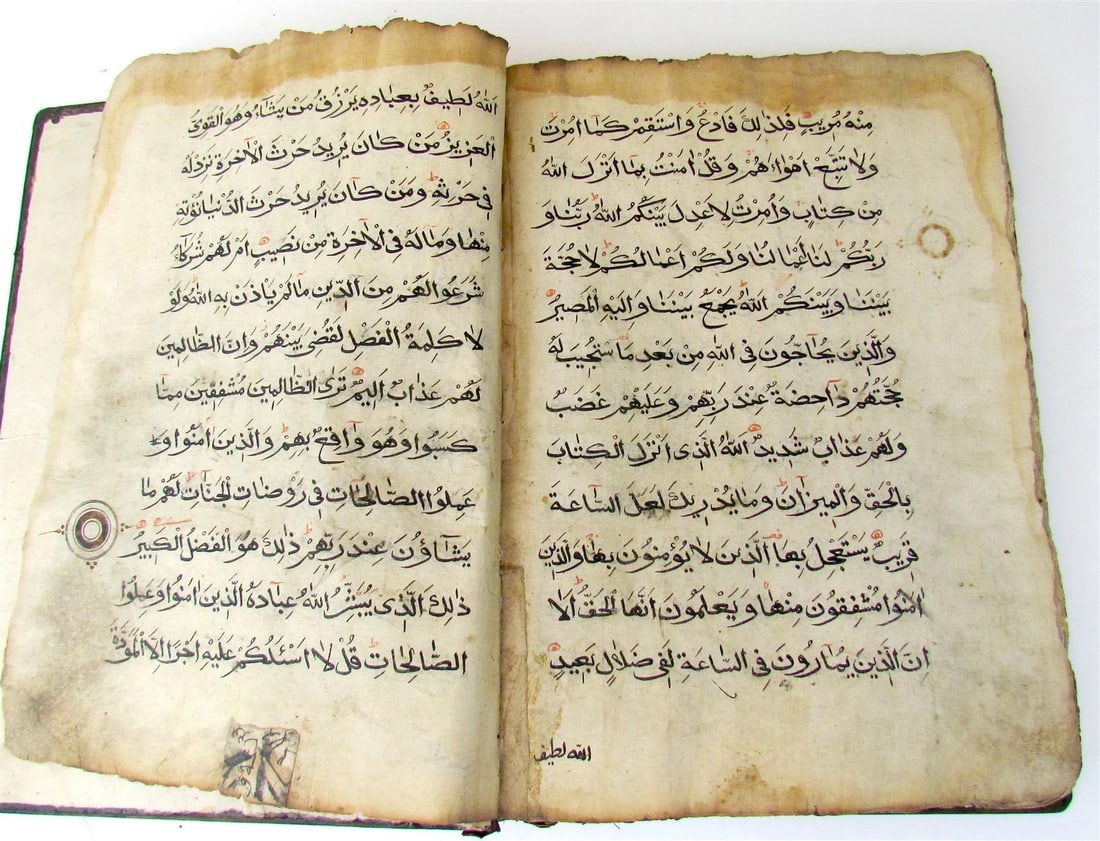 مِنْهُ مُرِيبٍ فَلِذٰلِكَ فَادْعُ وَاسْتَقِمْ كَمَا اُمِرْتَ
وَلَا تَتَّبِعْ اَهْوَاءَهُمْ وَقُلْ اٰمَنْتُ بِمَا اَنْزَلَ اللّٰهُ
مِنْ كِتَابٍ وَاُمِرْتُ لِاَعْدِلَ بَيْنَكُمُ اللّٰهُ رَبُّنَا وَ
رَبُّكُمْ لَنَا اَعْمَالُنَا وَلَكُمْ اَعْمَالُكُمْ لَا حُجَّةَ
بَيْنَنَا وَبَيْنَكُمُ اللّٰهُ يَجْمَعُ بَيْنَنَا وَاِلَيْهِ الْمَصِيرُ
وَالَّذِينَ يُحَاجُّونَ فِى اللّٰهِ مِنْ بَعْدِ مَا اسْتُجِيبَ لَهُ
حُجَّتُهُمْ دَاحِضَةٌ عِنْدَ رَبِّهِمْ وَعَلَيْهِمْ غَضَبٌ
وَلَهُمْ عَذَابٌ شَدِيدٌ اَللّٰهُ الَّذِى اَنْزَلَ الْكِتَابَ
بِالْحَقِّ وَالْمِيزَانَ وَمَا يُدْرِيكَ لَعَلَّ السَّاعَةَ
قَرِيبٌ يَسْتَعْجِلُ بِهَا الَّذِينَ لَا يُؤْمِنُونَ بِهَا وَالَّذِينَ
اٰمَنُوا مُشْفِقُونَ مِنْهَا وَيَعْلَمُونَ اَنَّهَا الْحَقُّ اَلَا
اِنَّ الَّذِينَ يُمَارُونَ فِى السَّاعَةِ لَفِى ضَلَالٍ بَعِيدٍ
اللّٰه لطيف
اَللّٰهُ لَطِيفٌ بِعِبَادِهِ يَرْزُقُ مَنْ يَشَاءُ وَهُوَ الْقَوِىُّ
الْعَزِيزُ مَنْ كَانَ يُرِيدُ حَرْثَ الْاٰخِرَةِ نَزِدْ لَهُ
فِى حَرْثِهِ وَمَنْ كَانَ يُرِيدُ حَرْثَ الدُّنْيَا نُؤْتِهِ
مِنْهَا وَمَا لَهُ فِى الْاٰخِرَةِ مِنْ نَصِيبٍ اَمْ لَهُمْ شُرَكَاءُ
شَرَعُوا لَهُمْ مِنَ الدِّينِ مَا لَمْ يَاْذَنْ بِهِ اللّٰهُ وَلَوْ
لَا كَلِمَةُ الْفَصْلِ لَقُضِىَ بَيْنَهُمْ وَاِنَّ الظَّالِمِينَ
لَهُمْ عَذَابٌ اَلِيمٌ تَرَى الظَّالِمِينَ مُشْفِقِينَ مِمَّا
كَسَبُوا وَهُوَ وَاقِعٌ بِهِمْ وَالَّذِينَ اٰمَنُوا وَ
عَمِلُوا الصَّالِحَاتِ فِى رَوْضَاتِ الْجَنَّاتِ لَهُمْ مَا
يَشَاؤُنَ عِنْدَ رَبِّهِمْ ذٰلِكَ هُوَ الْفَضْلُ الْكَبِيرُ
ذٰلِكَ الَّذِى يُبَشِّرُ اللّٰهُ عِبَادَهُ الَّذِينَ اٰمَنُوا وَعَمِلُوا
الصَّالِحَاتِ قُلْ لَا اَسْئَلُكُمْ عَلَيْهِ اَجْرًا اِلَّا الْمَوَدَّةَ